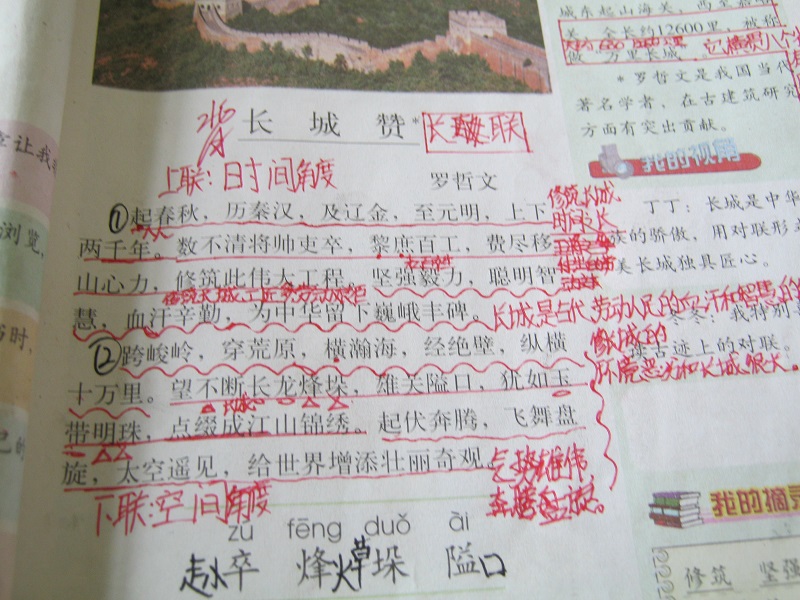 城东起山海关，西至嘉峪
关，全长约12600里，被称
做“万里长城
记忆
*罗哲文是我国当代
著名学者，在古建筑研究
方面有突出贡献。
我的视角
丁丁：长城是中华
族的骄傲，用对联形
美长城独具匠心。
我特别喜
读古迹上的对联。
长城赞*
长联
上联：时间角度
罗哲文
①起春秋，历秦汉，及辽金，至元明，上下
两千年。数不清将帅吏卒，黎庶百工，费尽移
山心力，修筑此伟大工程。坚强毅力，聪明智
慧，血汗辛勤，为中华留下巍峨丰碑。
修筑长城
时间长
长城是古代劳动人民的血汗和智慧的
②跨峻岭，穿荒原，横瀚海，经绝壁，纵横
十万里。望不断长龙烽垛，雄关隘口，犹如玉
带明珠，点缀成江山锦绣。起伏奔腾，飞舞盘
旋，太空遥见，给世界增添壮丽奇观。
长城
修长城的
环境恶劣和长城很大。
气势雄伟
奔腾
下联：空间角度
zú fēng duǒ ài
卒 烽 垛 隘口
我的摘
修筑 坚强
空让我
浏览，
时，
己的